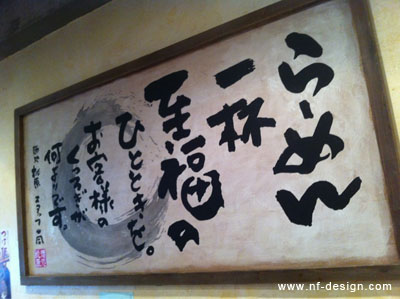 らーめん
一杯
至福の
ひとときを。
お客様の
くつろぎが
何よりです。
スタッフ一同
www.nf-design.com